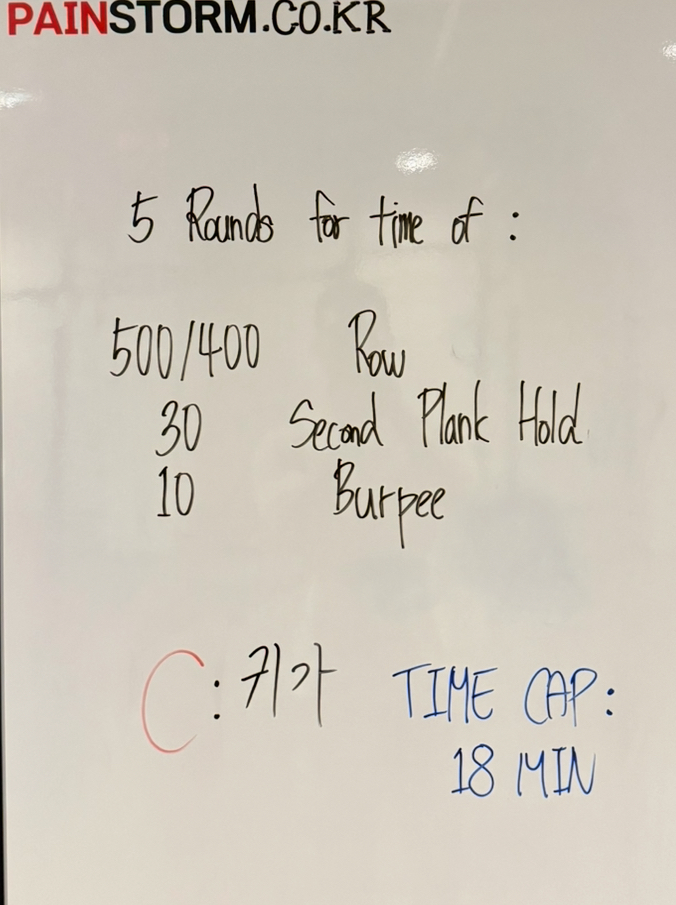 PAINSTORM.CO.KR
5 Rounds for time of :
500/400 Row
30 Second Plank Hold
10 Burpee
C : 귀가 TIME CAP:
18 MIN